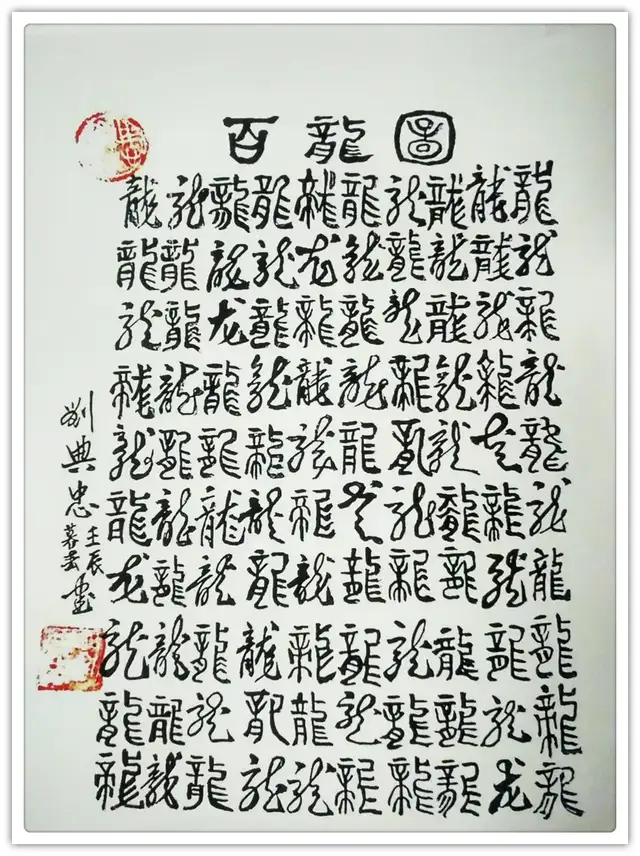 百龍圖
龍龍龍龍龍龍龍龍龍龍
龍龍龍龍龙龍龍龍龍龍
龍龍龙龍龍龍龍龍龍龍
龍龍龍龍龍龍龍龍龍龍
龍龍龍龍龍龍龍龍龙龍
龍龍龍龍龍龙龍龍龍龍
龙龍龍龍龍龍龍龍龍龍
龍龍龍龍龍龍龍龍龍龍
龍龍龍龍龍龍龍龍龍龍
龍龍龍龍龍龍龍龍龙龍
劉典忠
壬辰